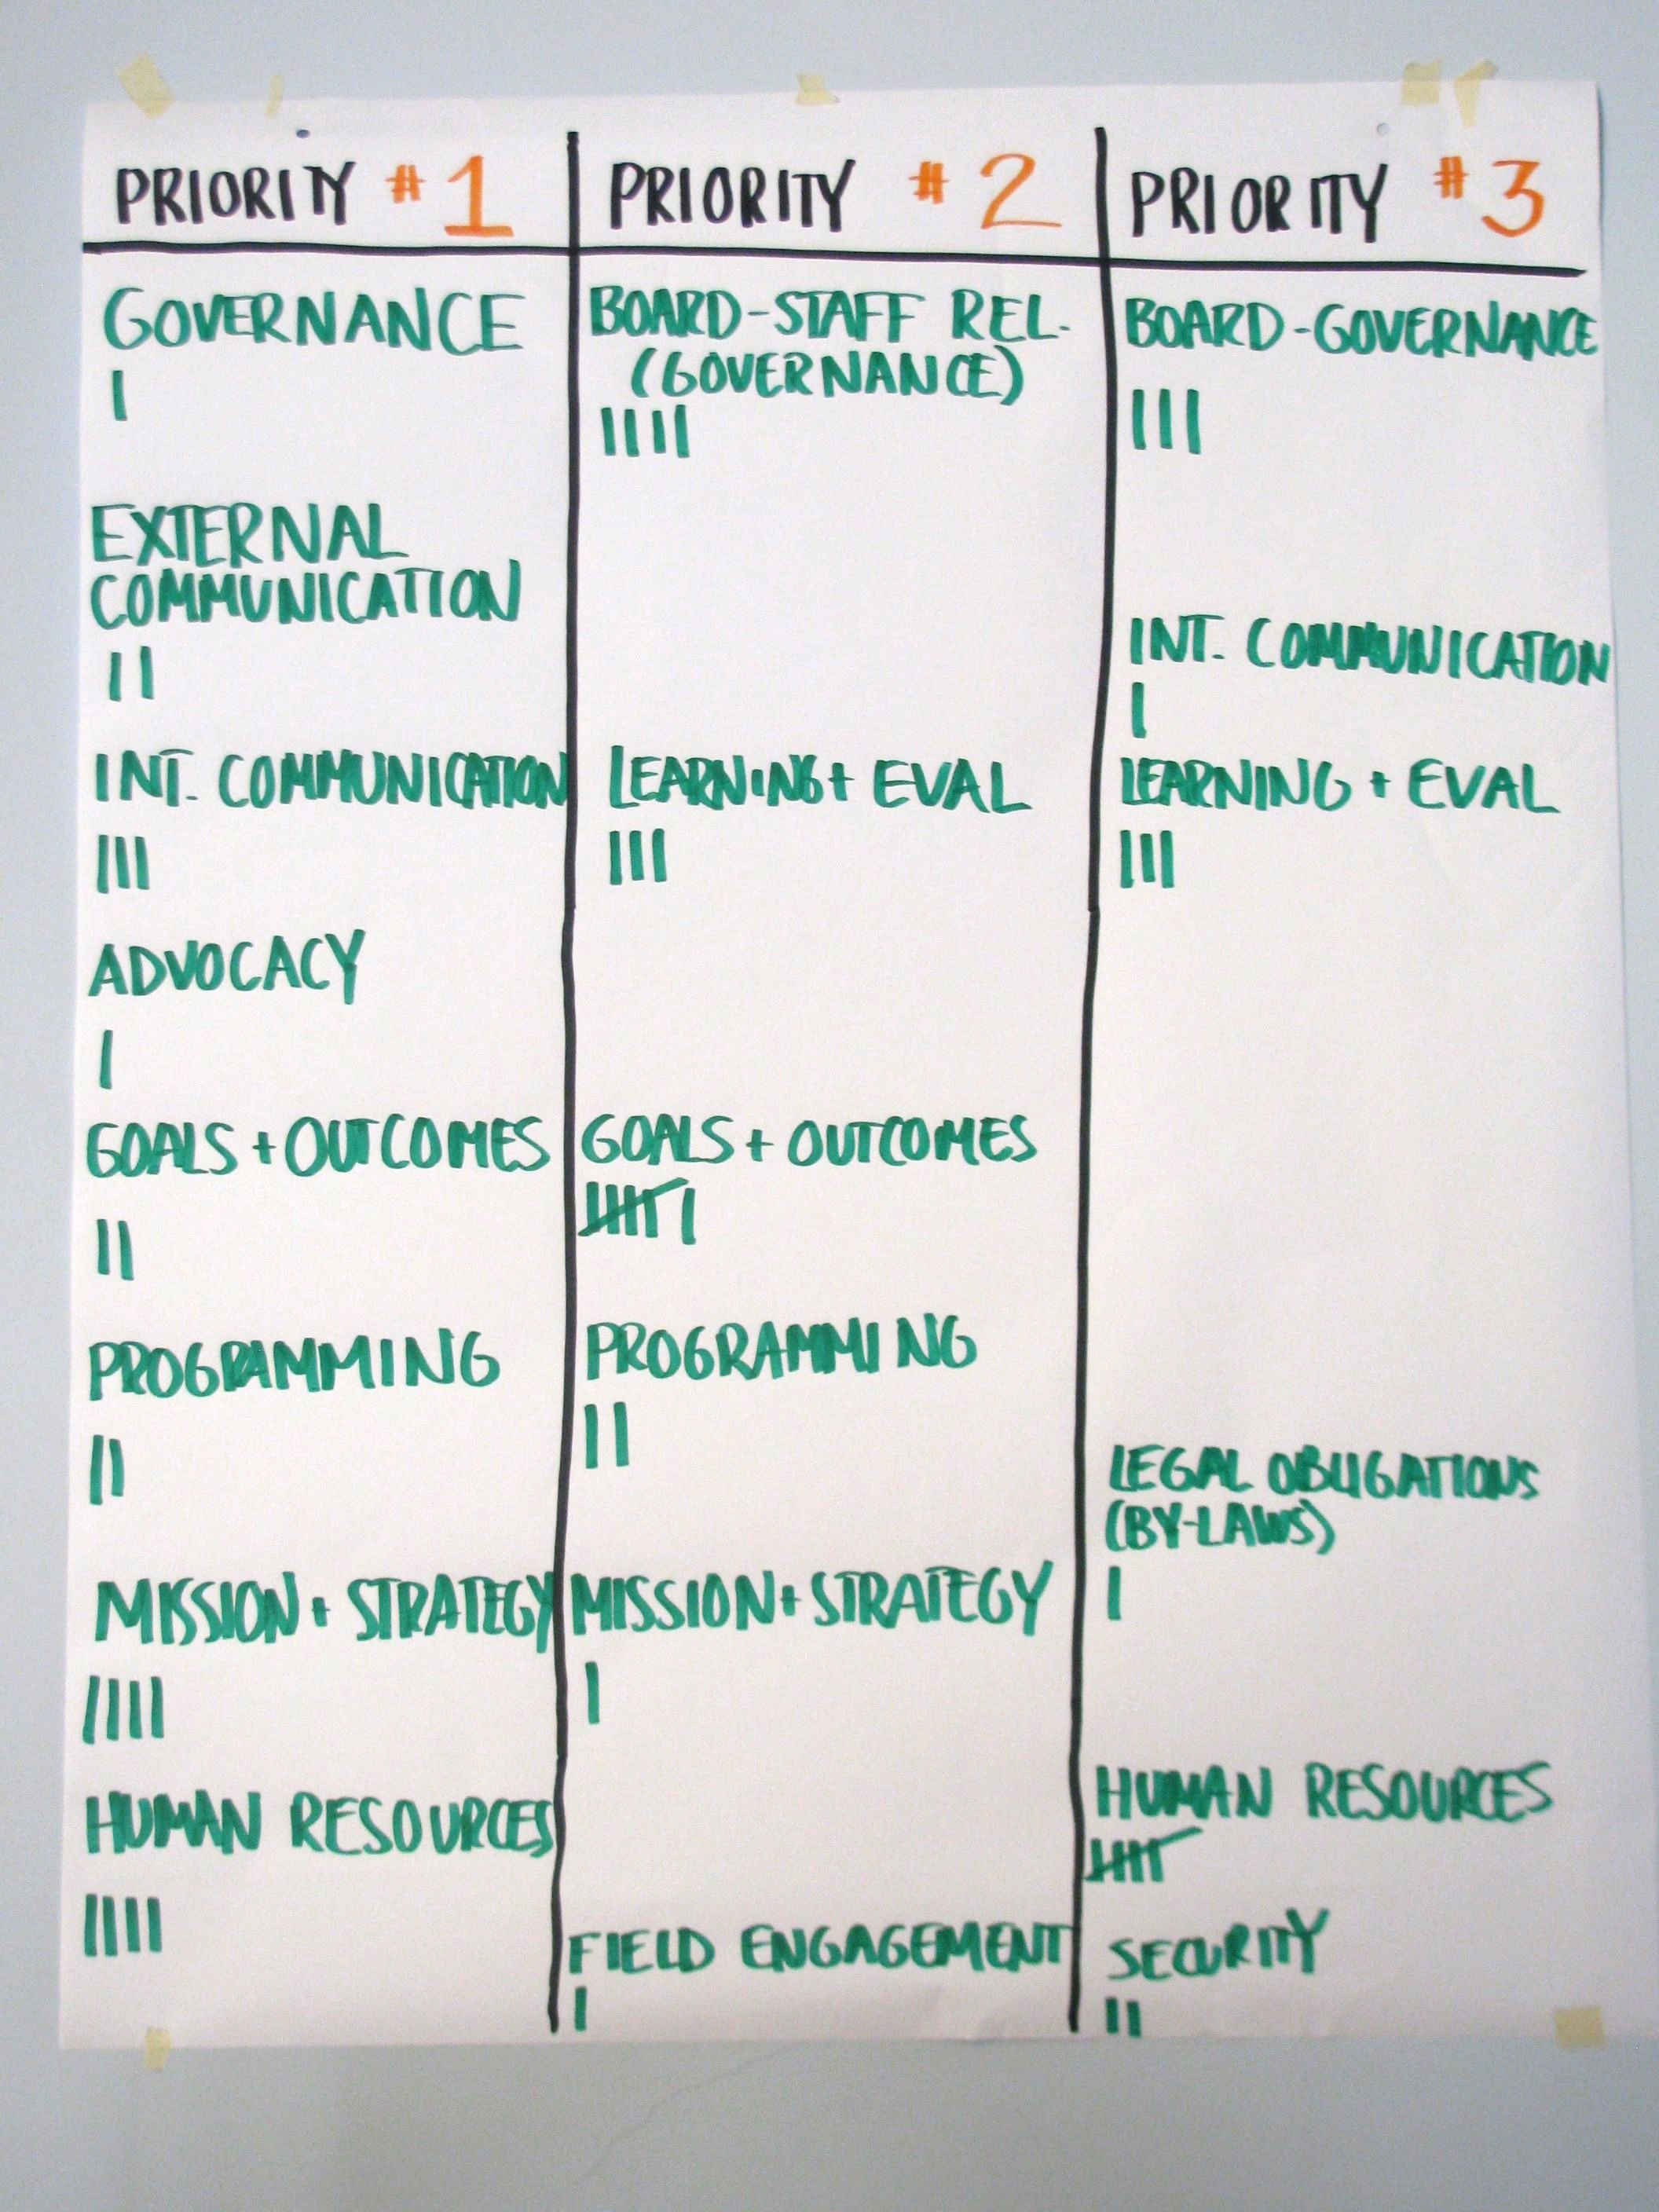 PRIORITY #1
GOVERNANCE
I
EXTERNAL
COMMUNICATION
II
INT. COMMUNICATION
III
ADVOCACY
I
GOALS + OUTCOMES
II
PROGRAMMING
II
MISSION + STRATEGY
IIII
HUMAN RESOURCES
IIII
PRIORITY #2
BOARD-STAFF REL.
(GOVERNANCE)
IIII
LEARNING + EVAL
III
GOALS + OUTCOMES
IIIII I
PROGRAMMING
II
MISSION + STRATEGY
I
FIELD ENGAGEMENT
I
PRIORITY #3
BOARD-GOVERNANCE
III
INT. COMMUNICATION
I
LEARNING + EVAL
III
LEGAL OBLIGATIONS
(BY-LAWS)
I
HUMAN RESOURCES
IIIII
SECURITY
II